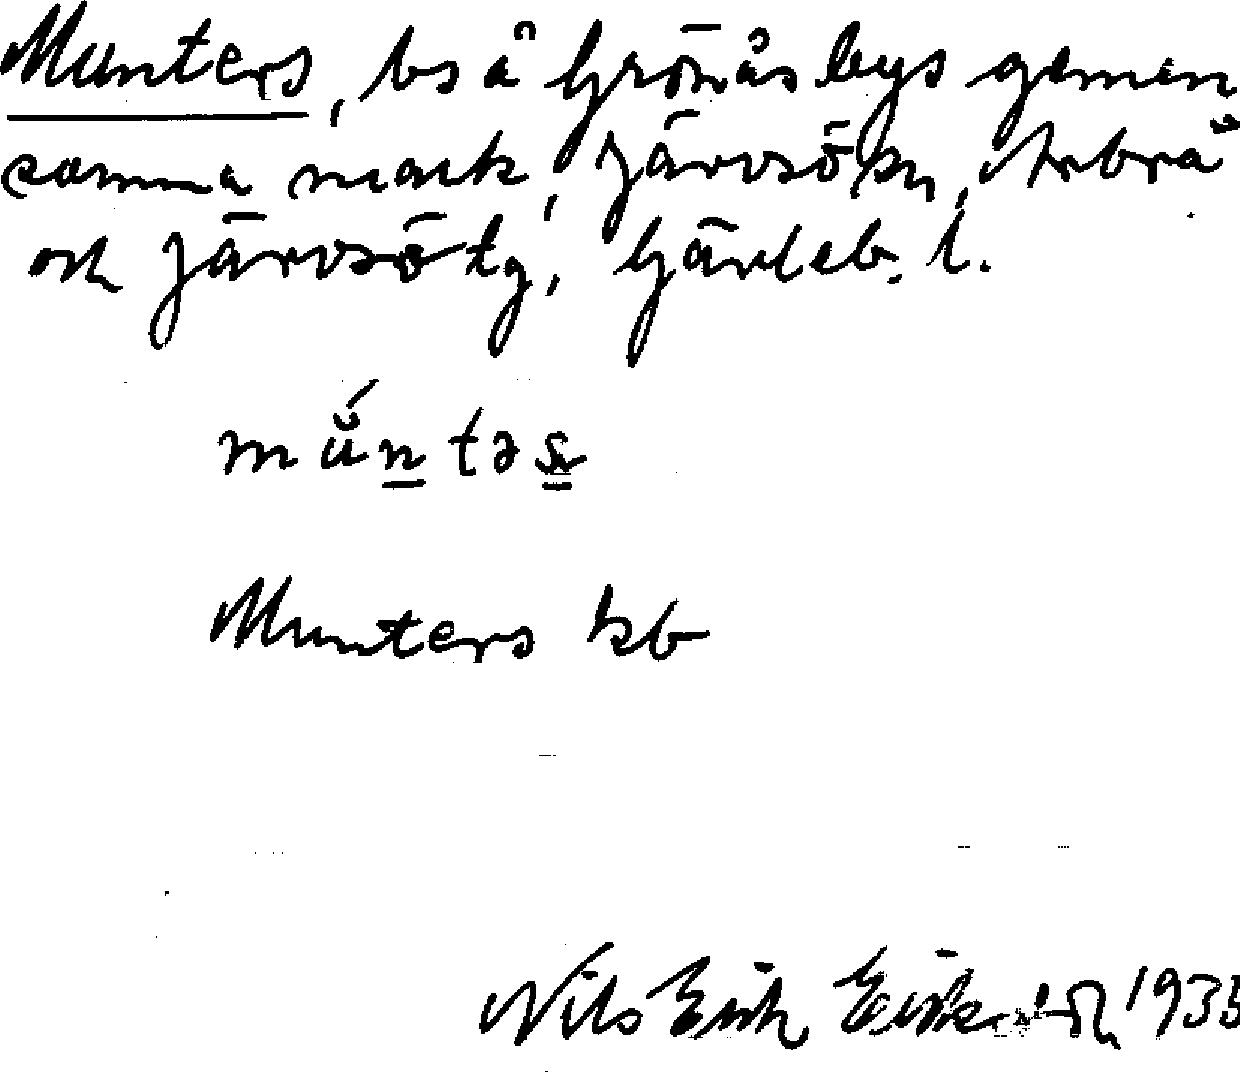 Munters, bs å Grönås bys gemen
samma mark, Järvsö sn, Arbrå
och Järvsö tg, Gävleb. l.
mŭ́ntəs
Munters kb
Nils Erik Eriksson 1935